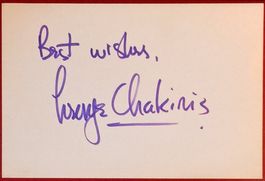 Best wishes,
George Chakiris